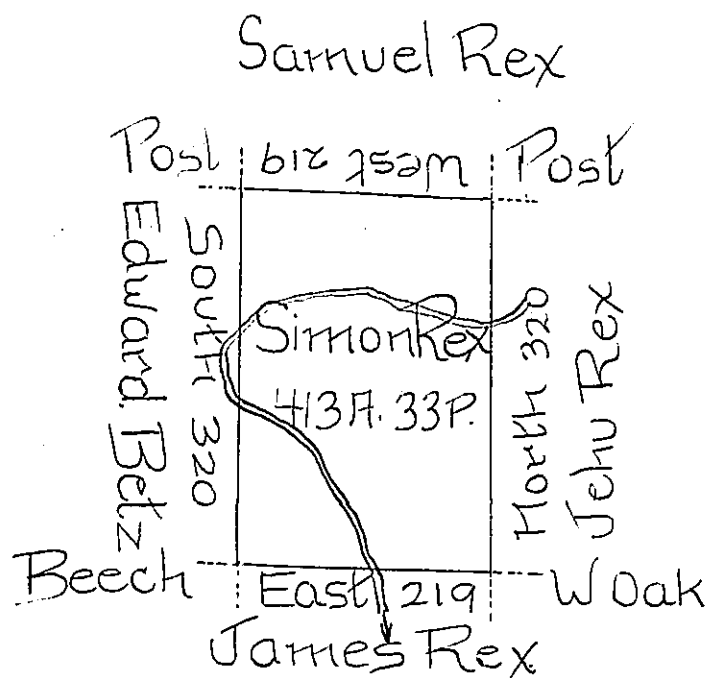 Samuel Rex
Post West 219 Post
Edward Betz
South 320
Simon Rex
413A. 33P.
North 320
Jehu Rex
Beech East 219 W Oak
James Rex